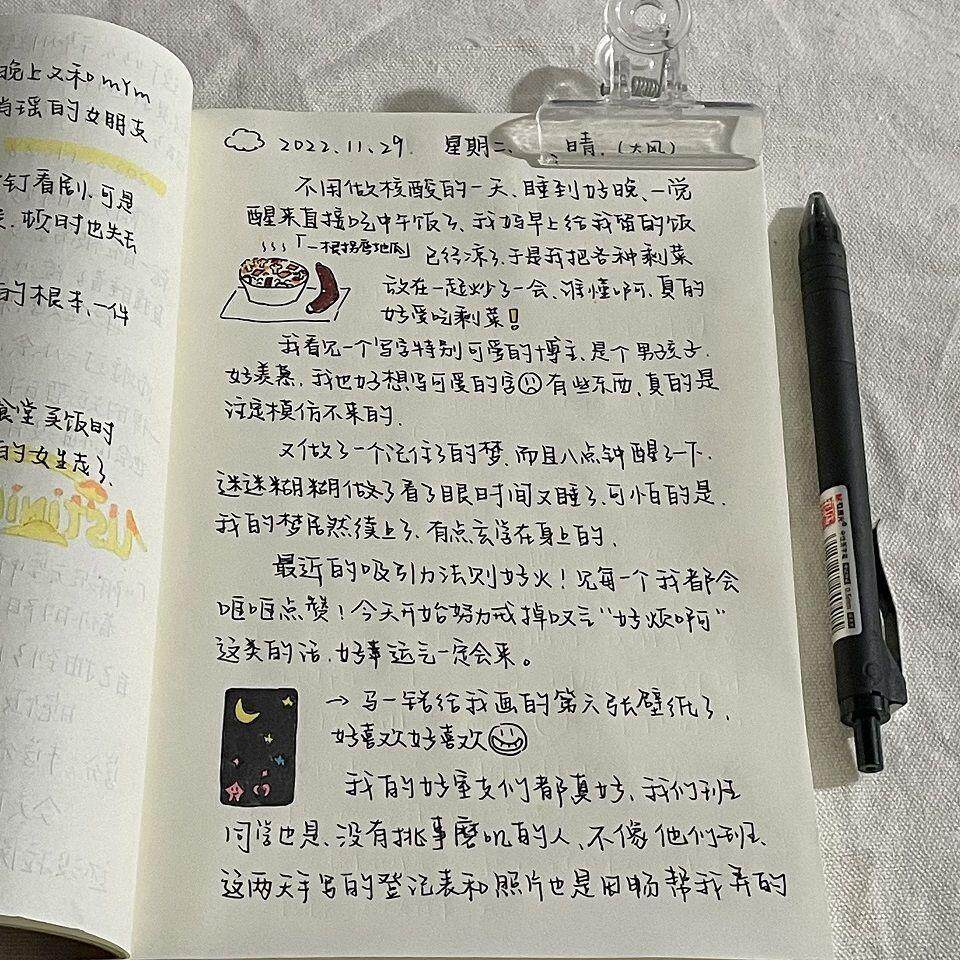 晚上又和mYm
的女朋友
钉看剧、可是
顿时也失去
的根本、一件
食堂买饭时
的女生走了、
2022.11.29. 星期二、晴.(大风)
不用做核酸的一天、睡到好晚、一觉
醒来直接吃中午饭了、我妈早上给我留的饭
「一根拐磨地瓜
已经凉了、于是我把各种剩菜
放在一起炒了一会、谁懂啊、真的
好爱吃剩菜!
我看见一个写字特别可爱的博主、是个男孩子.
好羡慕、我也好想写可爱的字 有些东西、真的是
注定模仿不来的.
又做了一个记住了的梦、而且八点钟醒了一下.
迷迷糊糊做了看了眼时间又睡了、可怕的是.
我的梦居然续上了、有点玄学在身上的.
最近的吸引力法则好火!见每一个我都会
哐哐点赞!今天开始努力戒掉叹气"好烦啊"
这类的话、好事运气一定会来。
→马一铭给我画的第六张壁纸了、
好喜欢好喜欢
我的好室友们都真好、我们班
同学也是、没有挑事磨叽的人、不像他们班.
这两天手写的登记表和照片也是田畅帮我弄的